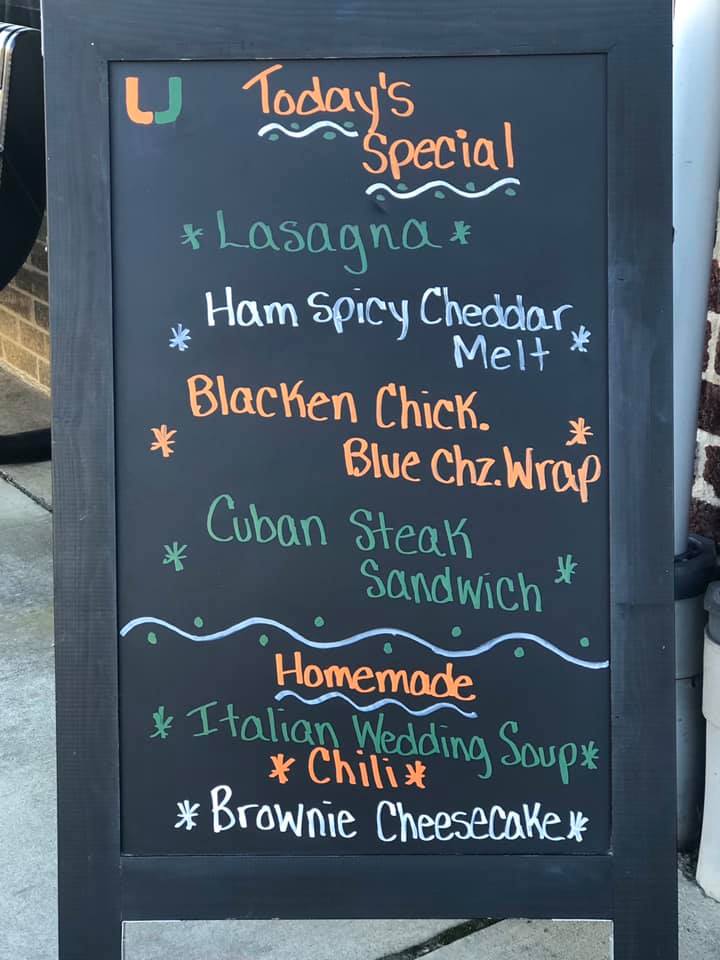 U
Today's
Special
* Lasagna *
Ham Spicy Cheddar
* Melt *
Blacken Chick.
* Blue Chz. Wrap *
Cuban Steak
* Sandwich *
Homemade
* Italian Wedding Soup *
* Chili *
* Brownie Cheesecake *